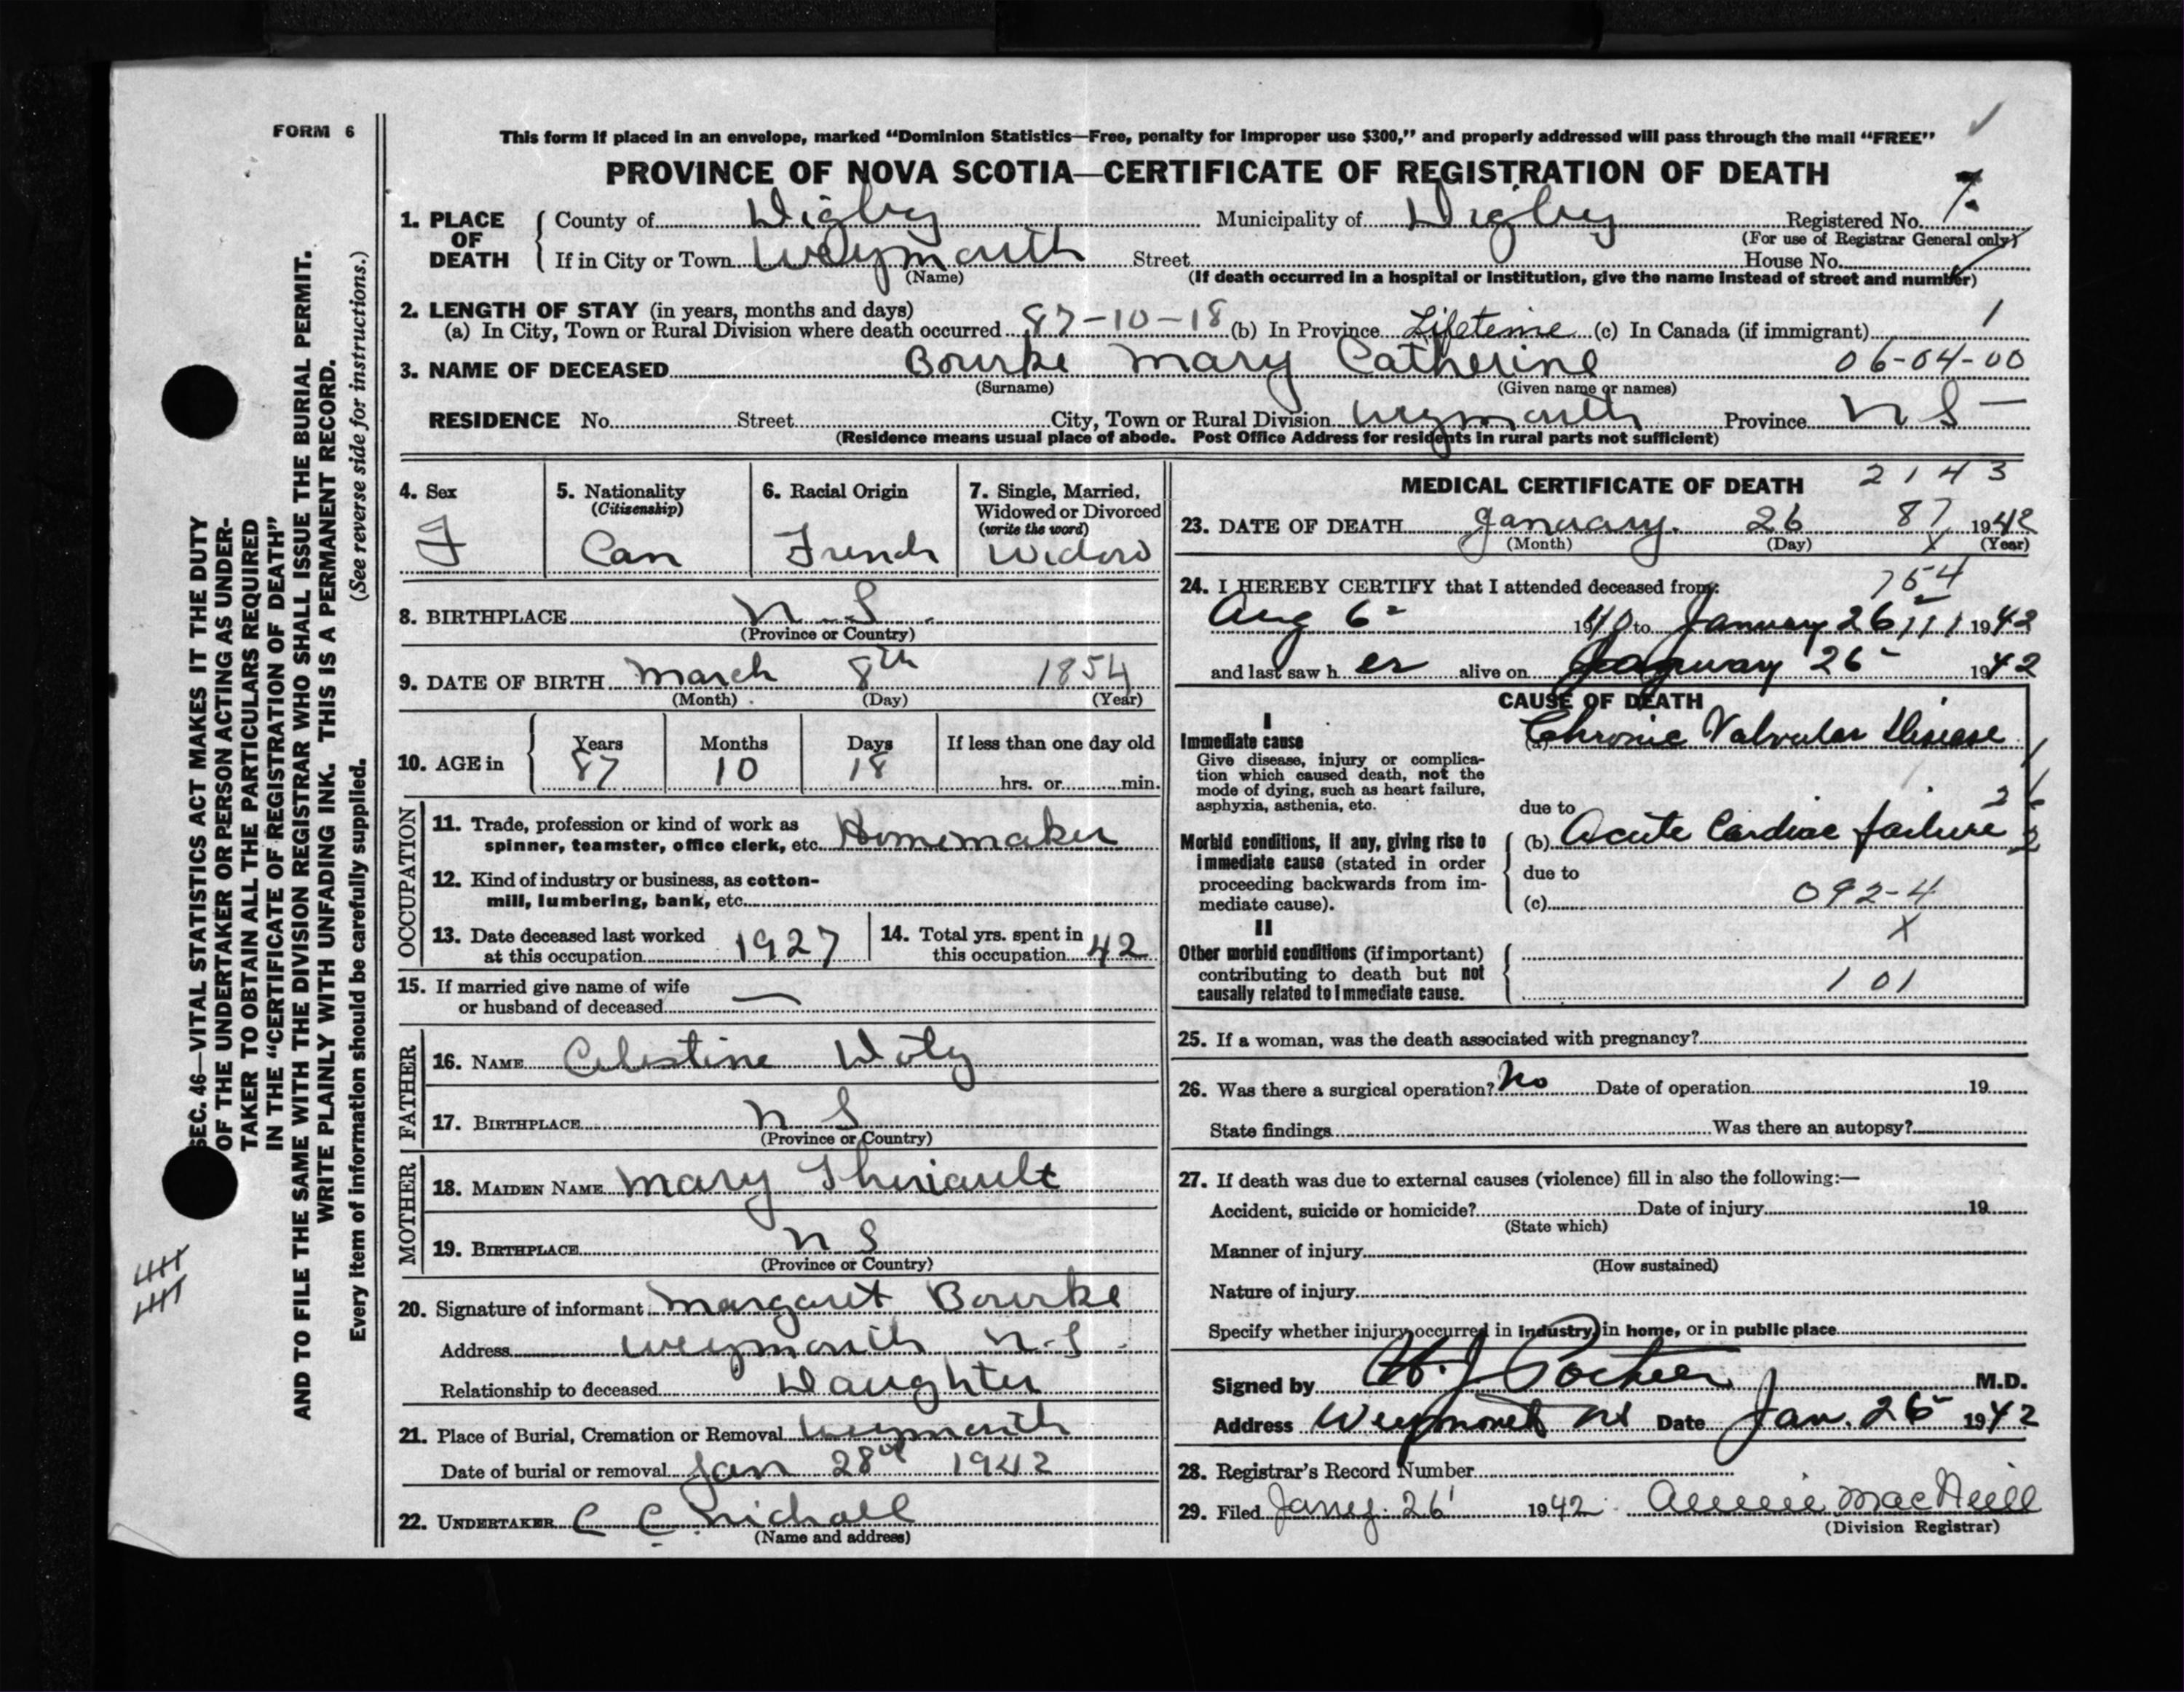 FORM 6
This form if placed in an envelope, marked “Dominion Statistics—Free, penalty for improper use $300,” and properly addressed will pass through the mail “FREE”
PROVINCE OF NOVA SCOTIA—CERTIFICATE OF REGISTRATION OF DEATH
1. PLACE OF DEATH
County of Digby Municipality of Digby Registered No. 7.
(For use of Registrar General only)
If in City or Town Weymouth Street House No.
(Name) (If death occurred in a hospital or institution, give the name instead of street and number)
2. LENGTH OF STAY (in years, months and days)
(a) In City, Town or Rural Division where death occurred 87-10-18 (b) In Province Lifetime (c) In Canada (if immigrant) 1
3. NAME OF DECEASED Bourke Mary Catherine 06-04-00
(Surname) (Given name or names)
RESIDENCE No. Street City, Town or Rural Division Weymouth Province N S —
(Residence means usual place of abode. Post Office Address for residents in rural parts not sufficient)
4. Sex
F
5. Nationality
(Citizenship)
Can
6. Racial Origin
French
7. Single, Married, Widowed or Divorced
(write the word)
Widow
8. BIRTHPLACE N.S.
(Province or Country)
9. DATE OF BIRTH March 8th 1854
(Month) (Day) (Year)
10. AGE in
Years Months Days If less than one day old
87 10 18 hrs. or min.
OCCUPATION
11. Trade, profession or kind of work as
spinner, teamster, office clerk, etc. Homemaker
12. Kind of industry or business, as cotton-
mill, lumbering, bank, etc.
13. Date deceased last worked
at this occupation 1927
14. Total yrs. spent in
this occupation 42
15. If married give name of wife
or husband of deceased —
FATHER
16. NAME Celestine Doty
17. BIRTHPLACE N S
(Province or Country)
MOTHER
18. MAIDEN NAME Mary Theriault
19. BIRTHPLACE N S
(Province or Country)
20. Signature of informant Margaret Bourke
Address Weymouth N.S.
Relationship to deceased Daughter
21. Place of Burial, Cremation or Removal Weymouth
Date of burial or removal Jan 28 1942
22. UNDERTAKER C C Nichall
(Name and address)
MEDICAL CERTIFICATE OF DEATH 2143
23. DATE OF DEATH January. 26 87 1942
(Month) (Day) X (Year)
24. I HEREBY CERTIFY that I attended deceased from: 764
Aug 6 1940 to January 26 111 1942
and last saw her alive on January 26 1942
CAUSE OF DEATH
I
Immediate cause
Give disease, injury or complica-
tion which caused death, not the
mode of dying, such as heart failure,
asphyxia, asthenia, etc.
(a) Chronic Valvular Disease
due to
Morbid conditions, if any, giving rise to
immediate cause (stated in order
proceeding backwards from im-
mediate cause).
(b) Acute Cardiac failure
due to
(c) 092-4
X
II
Other morbid conditions (if important)
contributing to death but not
causally related to immediate cause.
101
25. If a woman, was the death associated with pregnancy?
26. Was there a surgical operation? No Date of operation 19
State findings Was there an autopsy?
27. If death was due to external causes (violence) fill in also the following:—
Accident, suicide or homicide? Date of injury 19
(State which)
Manner of injury
(How sustained)
Nature of injury
Specify whether injury occurred in industry, in home, or in public place
Signed by M.D.
Address Weymouth NS Date Jan. 26 1942
28. Registrar's Record Number
29. Filed Jany. 26 1942 Annie MacNeill
(Division Registrar)
SEC. 46—VITAL STATISTICS ACT MAKES IT THE DUTY
OF THE UNDERTAKER OR PERSON ACTING AS UNDER-
TAKER TO OBTAIN ALL THE PARTICULARS REQUIRED
IN THE “CERTIFICATE OF REGISTRATION OF DEATH”
AND TO FILE THE SAME WITH THE DIVISION REGISTRAR WHO SHALL ISSUE THE BURIAL PERMIT.
WRITE PLAINLY WITH UNFADING INK. THIS IS A PERMANENT RECORD.
Every item of information should be carefully supplied. (See reverse side for instructions.)